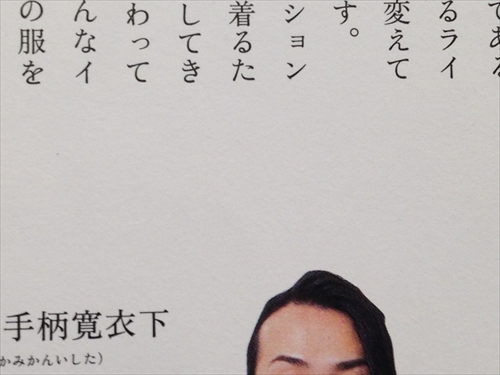 である
るライ
変えて
す。
ション
着るた
してき
わって
んなイ
の服を
手柄寛衣下
かみかんいした）